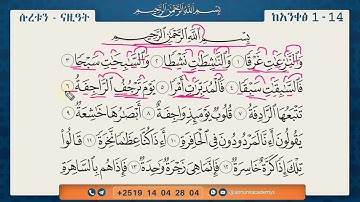 ሱረቱን - ናዚዓት
بِسْمِ اللَّهِ الرَّحْمَٰنِ الرَّحِيمِ
ከአንቀፅ 1 - 14
بِسْمِ اللَّهِ الرَّحْمَٰنِ الرَّحِيمِ
وَالنَّازِعَاتِ غَرْقًا ١ وَالنَّاشِطَاتِ نَشْطًا ٢ وَالسَّابِحَاتِ سَبْحًا ٣
فَالسَّابِقَاتِ سَبْقًا ٤ فَالْمُدَبِّرَاتِ أَمْرًا ٥ يَوْمَ تَرْجُفُ الرَّاجِفَةُ ٦
تَتْبَعُهَا الرَّادِفَةُ ٧ قُلُوبٌ يَوْمَئِذٍ وَاجِفَةٌ ٨ أَبْصَارُهَا خَاشِعَةٌ ٩
يَقُولُونَ أَإِنَّا لَمَرْدُودُونَ فِي الْحَافِرَةِ ١٠ أَإِذَا كُنَّا عِظَامًا نَّخِرَةً ١١ قَالُوا
تِلْكَ إِذًا كَرَّةٌ خَاسِرَةٌ ١٢ فَإِنَّمَا هِيَ زَجْرَةٌ وَاحِدَةٌ ١٣ فَإِذَا هُم بِالسَّاهِرَةِ
+2519 14 04 28 04